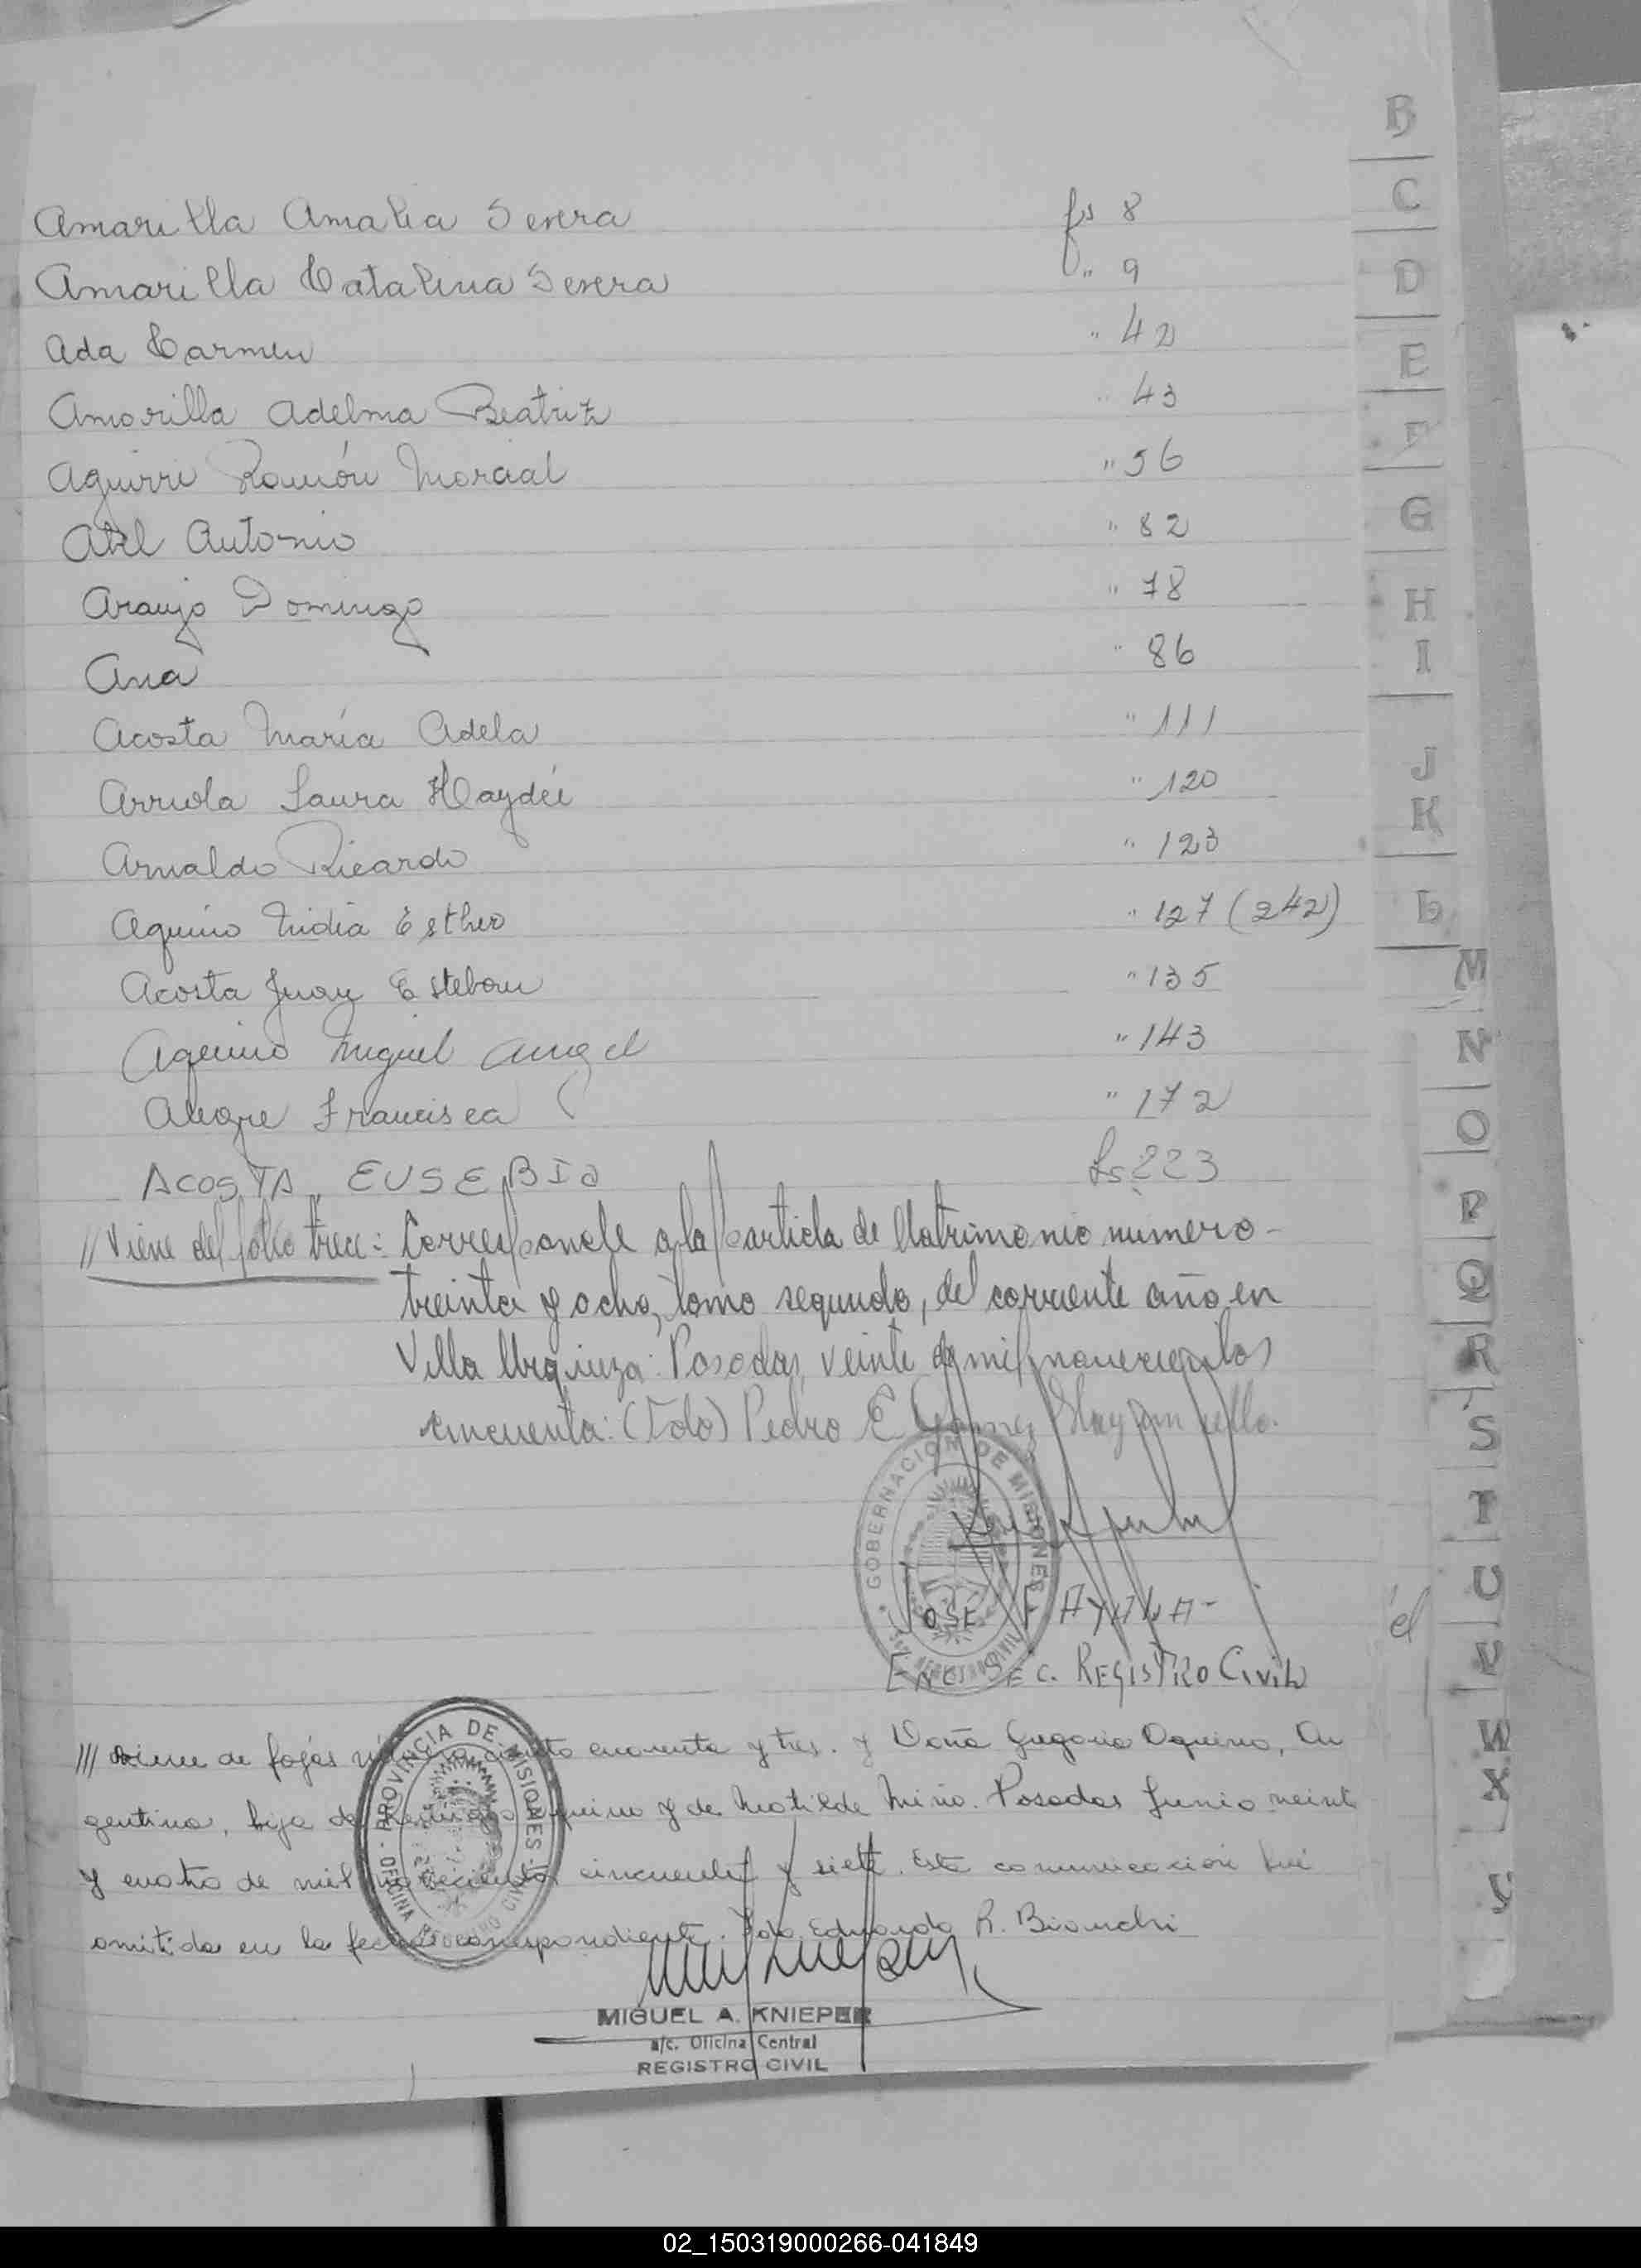 Amarilla Amalia Severa fs 8
Amarilla Catalina Severa " 9
Ada Carmen " 42
Amarilla Adelma Beatriz " 43
Aguirre Ramón Marcial " 56
Abel Antonio " 82
Araujo Domingo " 78
Ana " 86
Acosta María Adela " 111
Arriola Laura Haydée " 120
Arnaldo Ricardo " 123
Aquino Nidia Esther " 127 (242)
Acosta Juan Esteban " 135
Aquino Miguel Angel " 143
Alegre Francisca " 172
ACOSTA EUSEBIO fs 223
// Viene del folio trece: Corresponde a la partida de Matrimonio numero -
treinta y ocho, tomo segundo, del corriente año en
Villa Urquiza: Posadas, veinte de mil novecientos
cincuenta: (Fdo) Pedro E Gomez
GOBERNACION DE MISIONES
JOSE F AYALA -
ENC. SEC. REGISTRO CIVIL
/// Viene de fojas número ciento cuarenta y tres. y Doña Gregoria Aquino, Ar
gentina, hija de Remigio Aquino y de Matilde Miño. Posadas Junio veinte
y cuatro de mil novecientos cincuenta y siete. Esta comunicación fué
omitida en la fecha correspondiente. Fdo Eduardo R. Bianchi
PROVINCIA DE MISIONES
OFICINA REGISTRO CIVIL
MIGUEL A. KNIEPER
a/c. Oficina Central
REGISTRO CIVIL
B
C
D
E
F
G
H
I
J
K
L
M
N
O
P
Q
R
S
T
U
V
W
X
Y
él
02_150319000266-041849